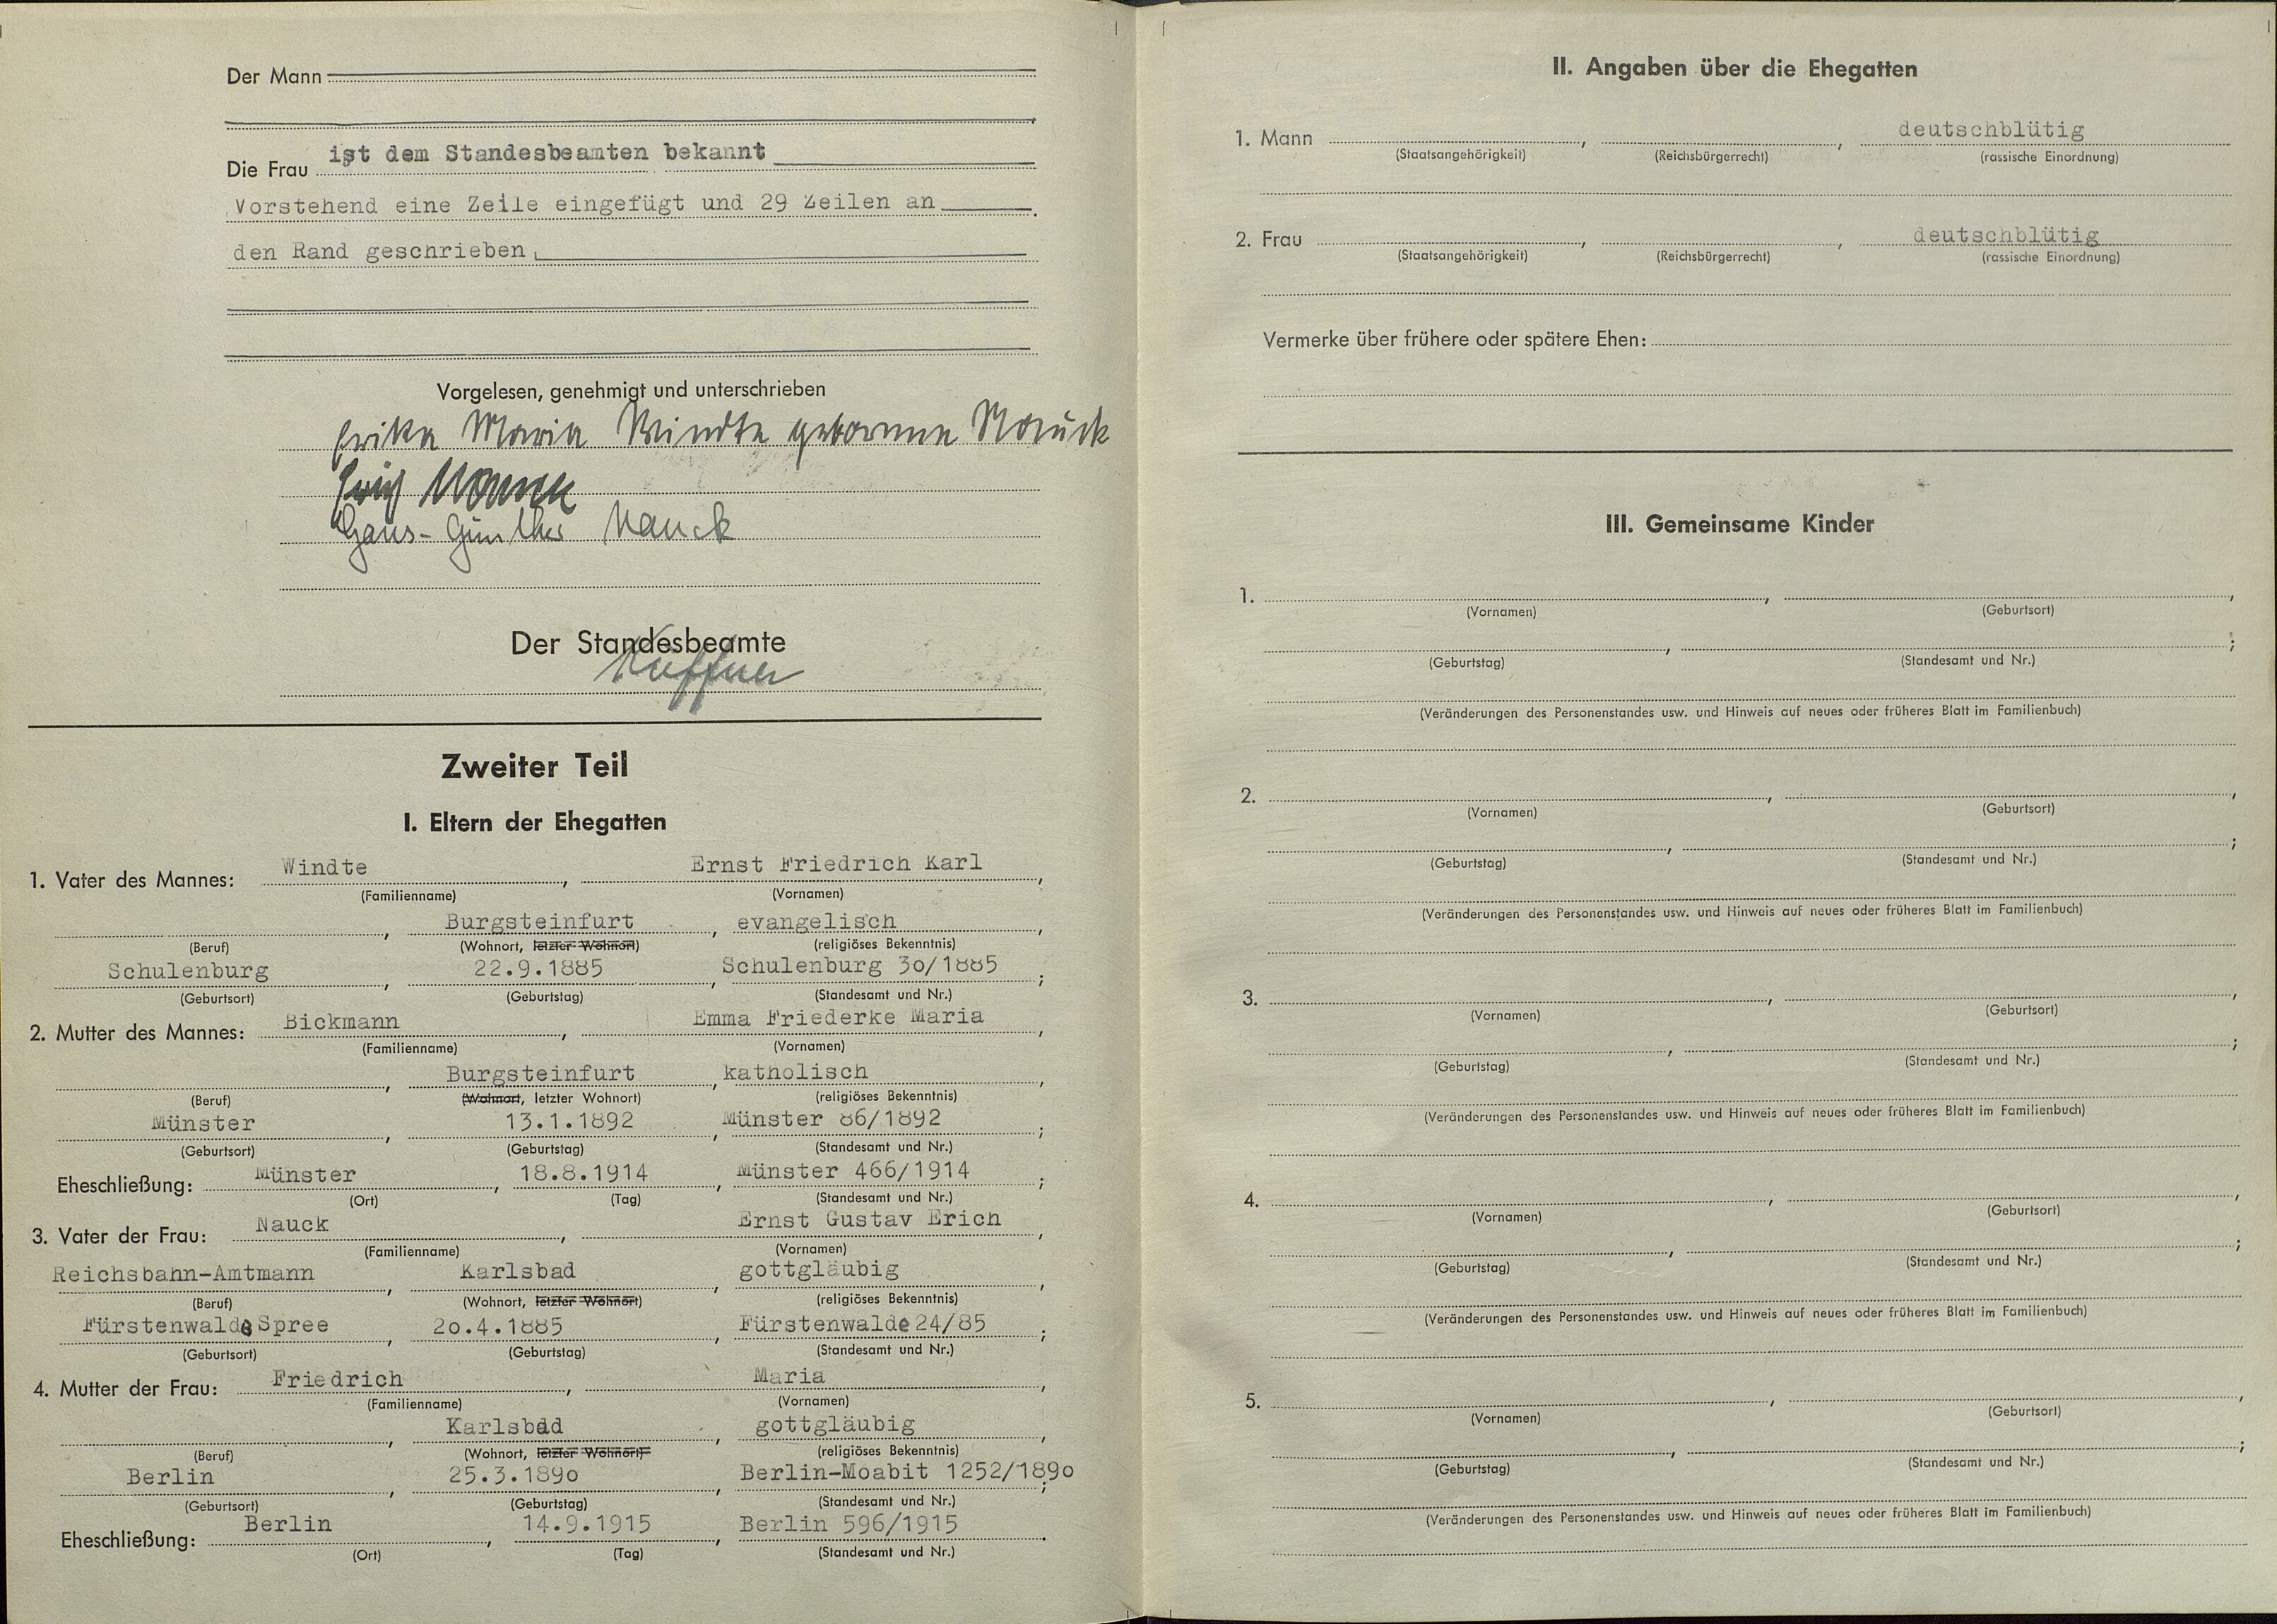 Der Mann
Die Frau ist dem Standesbeamten bekannt
Vorstehend eine Zeile eingefügt und 29 Zeilen an
den Rand geschrieben.
Vorgelesen, genehmigt und unterschrieben
Erika Maria Windte geborene Nauck
Erich Nauck
Hans-Günther Nauck
Der Standesbeamte
Zweiter Teil
I. Eltern der Ehegatten
1. Vater des Mannes: Windte, Ernst Friedrich Karl,
(Familienname) (Vornamen)
, Burgsteinfurt, evangelisch,
(Beruf) (Wohnort, letzter Wohnort) (religiöses Bekenntnis)
Schulenburg, 22.9.1885, Schulenburg 30/1885;
(Geburtsort) (Geburtstag) (Standesamt und Nr.)
2. Mutter des Mannes: Bickmann, Emma Friederke Maria,
(Familienname) (Vornamen)
, Burgsteinfurt, katholisch,
(Beruf) (Wohnort, letzter Wohnort) (religiöses Bekenntnis)
Münster, 13.1.1892, Münster 86/1892;
(Geburtsort) (Geburtstag) (Standesamt und Nr.)
Eheschließung: Münster, 18.8.1914, Münster 466/1914;
(Ort) (Tag) (Standesamt und Nr.)
3. Vater der Frau: Nauck, Ernst Gustav Erich,
(Familienname) (Vornamen)
Reichsbahn-Amtmann, Karlsbad, gottgläubig,
(Beruf) (Wohnort, letzter Wohnort) (religiöses Bekenntnis)
Fürstenwalde Spree, 20.4.1885, Fürstenwalde 24/85;
(Geburtsort) (Geburtstag) (Standesamt und Nr.)
4. Mutter der Frau: Friedrich, Maria,
(Familienname) (Vornamen)
, Karlsbad, gottgläubig,
(Beruf) (Wohnort, letzter Wohnort) (religiöses Bekenntnis)
Berlin, 25.3.1890, Berlin-Moabit 1252/1890;
(Geburtsort) (Geburtstag) (Standesamt und Nr.)
Eheschließung: Berlin, 14.9.1915, Berlin 596/1915.
(Ort) (Tag) (Standesamt und Nr.)
II. Angaben über die Ehegatten
1. Mann , , deutschblütig
(Staatsangehörigkeit) (Reichsbürgerrecht) (rassische Einordnung)
2. Frau , , deutschblütig
(Staatsangehörigkeit) (Reichsbürgerrecht) (rassische Einordnung)
Vermerke über frühere oder spätere Ehen:
III. Gemeinsame Kinder
1. , ,
(Vornamen) (Geburtsort)
, ;
(Geburtstag) (Standesamt und Nr.)
(Veränderungen des Personenstandes usw. und Hinweis auf neues oder früheres Blatt im Familienbuch)
2. , ,
(Vornamen) (Geburtsort)
, ;
(Geburtstag) (Standesamt und Nr.)
(Veränderungen des Personenstandes usw. und Hinweis auf neues oder früheres Blatt im Familienbuch)
3. , ,
(Vornamen) (Geburtsort)
, ;
(Geburtstag) (Standesamt und Nr.)
(Veränderungen des Personenstandes usw. und Hinweis auf neues oder früheres Blatt im Familienbuch)
4. , ,
(Vornamen) (Geburtsort)
, ;
(Geburtstag) (Standesamt und Nr.)
(Veränderungen des Personenstandes usw. und Hinweis auf neues oder früheres Blatt im Familienbuch)
5. , ,
(Vornamen) (Geburtsort)
, ;
(Geburtstag) (Standesamt und Nr.)
(Veränderungen des Personenstandes usw. und Hinweis auf neues oder früheres Blatt im Familienbuch)